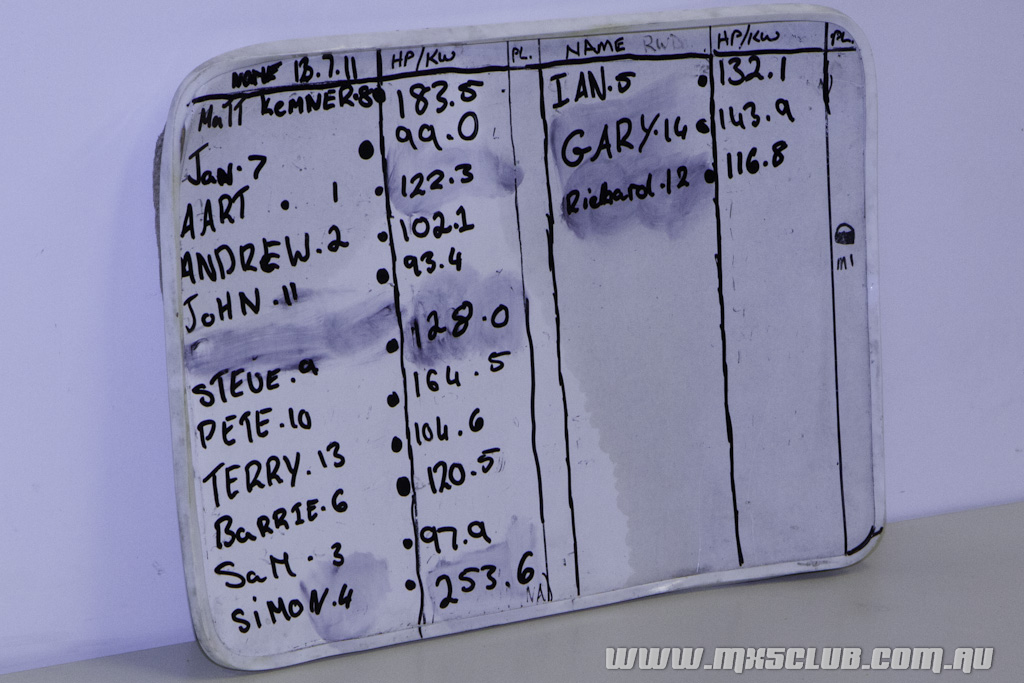 NAME 13.7.11 HP/KW PL.
MaTT KEMNER.8 183.5
Jan.7 99.0
AART . 1 122.3
ANDREW.2 102.1
JoHN.11 93.4
STEVE.9 128.0
PETE.10 164.5
TERRY.13 104.6
BaRRIE.6 120.5
SaM.3 97.9
SiMON.4 253.6
NA
NAME RWD HP/KW PL.
IAN.5 132.1
GARY.14 143.9
Richard.12 116.8
M1
WWW.MX5CLUB.COM.AU